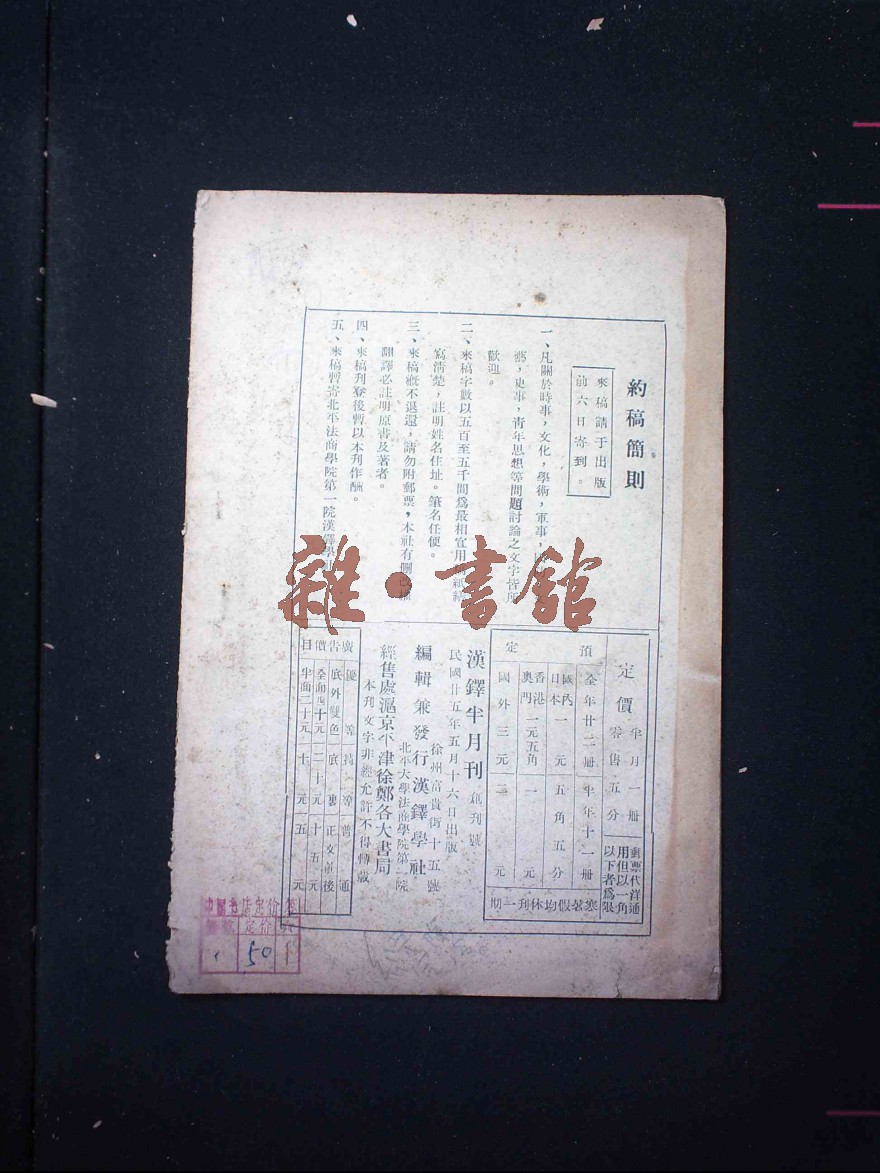 約稿簡則
來稿請于出版
前六日寄到。
一、凡關於時事，文化，學術，軍事，
藝，史事，青年思想等問題討論之文字皆所
歡迎。
二、來稿字數以五百至五千間爲最相宜用
寫清楚，註明姓名住址。筆名任便。
三、來稿概不退還，請勿附郵票，本社有刪
翻譯必註明原書及著者。
四、來稿刊登後暫以本刊作酬。
五、來稿暫寄北平法商學院第一院漢鐸學
雜·書館
定價
半月一冊
零售五分
郵票代洋通
用但以一角
以下者爲限
預定
全年廿二冊 半年十一冊
國內 日本 一元 五角五分
香港 澳門 一元五角 一元
國外 三元 二元
寒暑假均休刊一期
漢鐸半月刊 創刊號
民國廿五年五月十六日出版
徐州富貴街十五號
編輯兼發行漢鐸學社
北平大學法商學院第一院
經售處滬京平津徐鄭各大書局
本刊文字非經允許不得轉載
廣告價目
優等 特等 普通
底外雙色 底裏 正文前後
全面四十元 二十元 十五元
半面二十元 十元 五元
定价
50